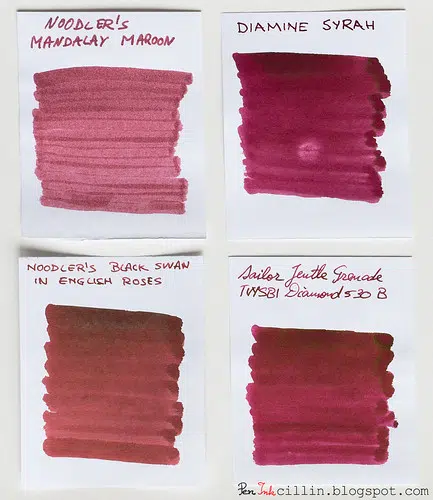 NOODLER'S
MANDALAY MAROON
DIAMINE SYRAH
NOODLER'S BLACK SWAN
IN ENGLISH ROSES
Sailor Jentle Grenade
TWSBI Diamond 530 B
Pen Inkcillin.blogspot.com